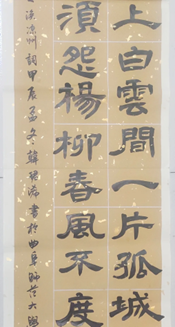 上白雲間一片孤城
須怨楊柳春風不度
涼州詞甲辰孟冬韓
書於曲阜師范大學